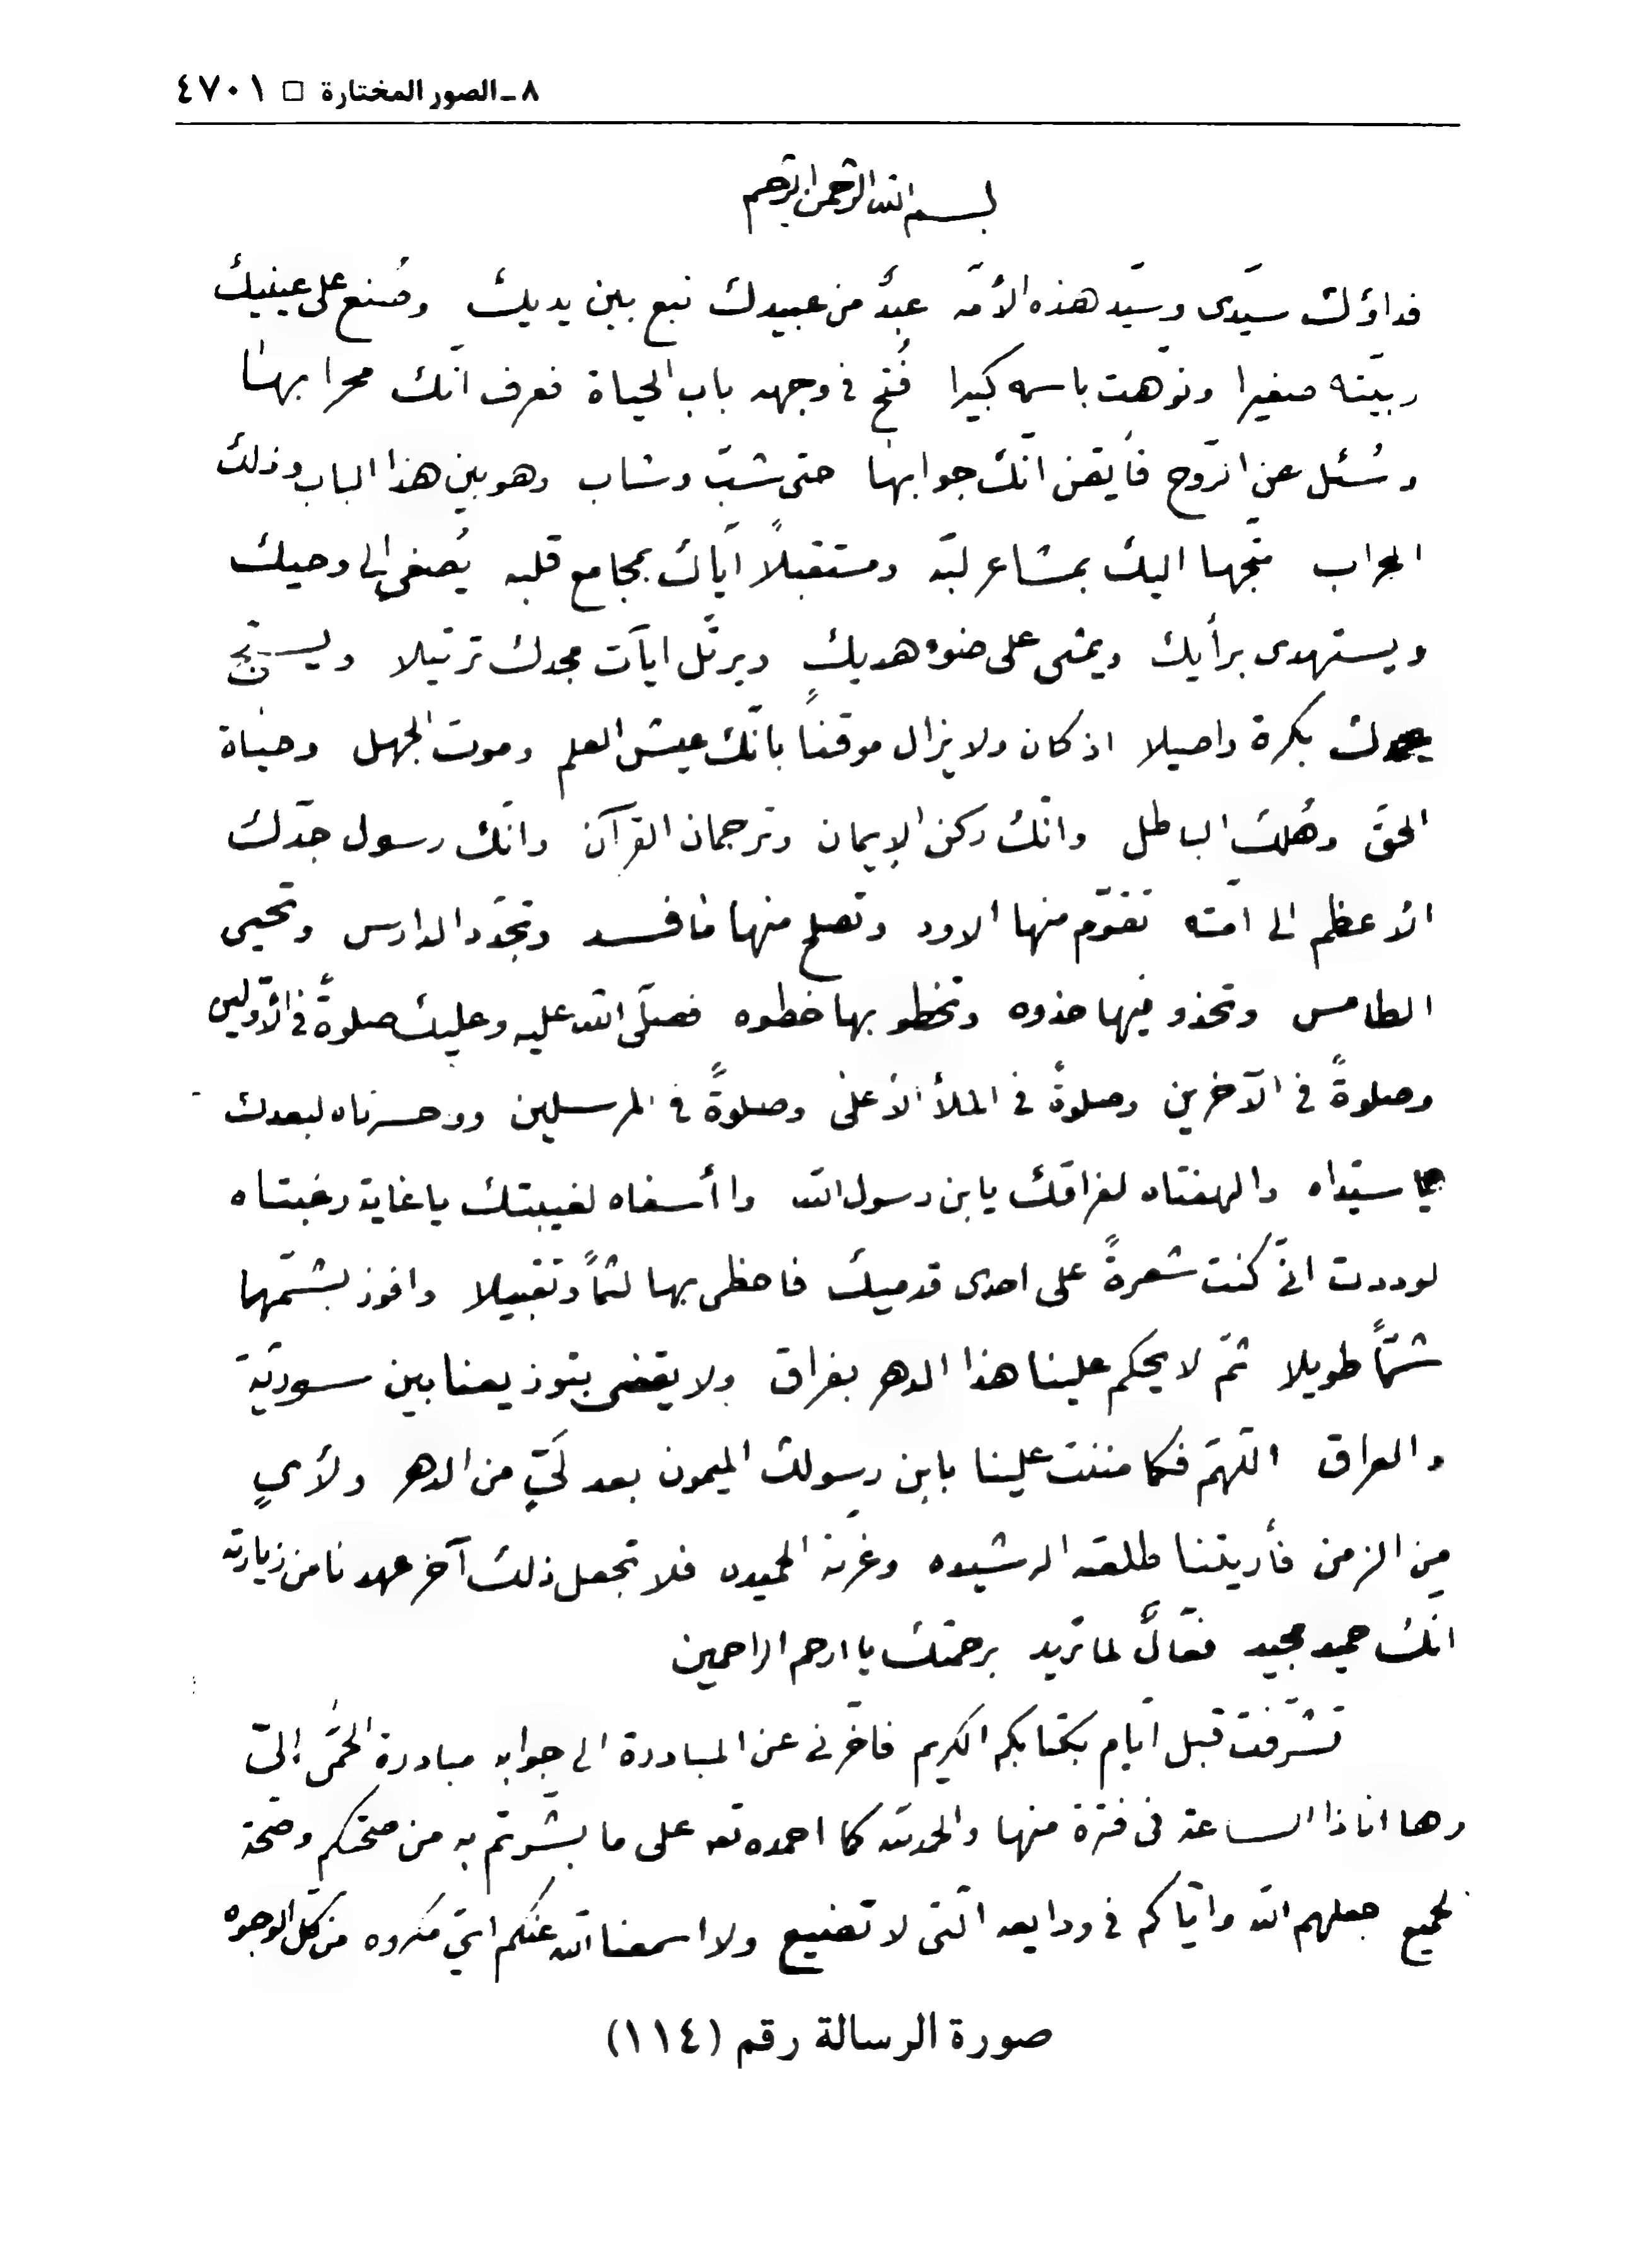 ٨ـ الصور المختارة □ ٤٧٠١
بسم الله الرحمن الرحيم
فداؤك سيّدى وسيّد هذه الأمّه عبدٌ من عبيدك نبع بين يديك وصُنع على عينيك
ربيّته صغيرا ونوّهت باسمه كبيرا فُتح فى وجهه باب الحياة فعرف انّك محرابها
وسُئل عن الرّوح فأيقن انّك جوابها حتى شبّ وشاب وهو بين هذا الباب وذلك
المحراب متّجها اليك بمشاعر لبّه ومستقبلاً ايّاك بمجامع قلبه يُصغى الى وحيك
ويستهدى برأيك ويمشى على ضوء هديك ويرتّل ايآت مجدك ترتيلا ويسبّح
بحمدك بكرة واصيلا اذ كان ولا يزال موقناً بانّك عيش العلم وموت الجهل وحياة
الحقّ وهُلك الباطل وانّك ركن الإيمان وترجمان القرآن وانّك رسول جدّك
الأعظم الى امّته تقوّم منها الاود وتصلح منها ما فسد وتجدّد الدارس وتحيى
الطامس وتحذو فيها حذوه وتخطو بها خطوه فصلّى الله عليه وعليك صلوةً فى الأوّلين
وصلوةً فى الآخرين وصلوةً فى الملأ الأعلى وصلوةً فى المرسلين ووحسرتاه لبعدك
يا سيّداه والهفتاه لفراقك يابن رسول الله وا أسفاه لغيبتك يا غاية رغبتاه
لوددت انّى كنت شعرةً على احدى قدميك فاحظى بها لثماً وتقبيلا وافوز بشمّها
شمّاً طويلا ثمّ لا يحكم علينا هذا الدهر بفراق ولا يقضى بتوزيعنا بين سوريّة
والعراق اللّهمّ فكما مننت علينا بابن رسولك الميمون بعد لَيٍّ من الدهر ولأيٍ
من الزمن فأريتنا طلعته الرشيده وغرته الحميده فلا تجعل ذلك آخر عهدنا من زيارته
انّك حميد مجيد فعّالٌ لما تريد برحمتك يا ارحم الراحمين
تشرّفت قبل ايّام بكتابكم الكريم فاخّرنى عن المبادرة الى جوابه مبادرة الحمّى إليّ
وها انا ذا الساعة فى فترة منها والحمدلله كما احمده تعـ على ما بشرتم به من صحّتكم وصحّة
الجميع جعلهم الله وايّاكم فى ودايعه الّتى لا تضيع ولا اسمعنا الله عنكم ايّ مكروه من كل الوجوه
صورة الرسالة رقم (١١٤)